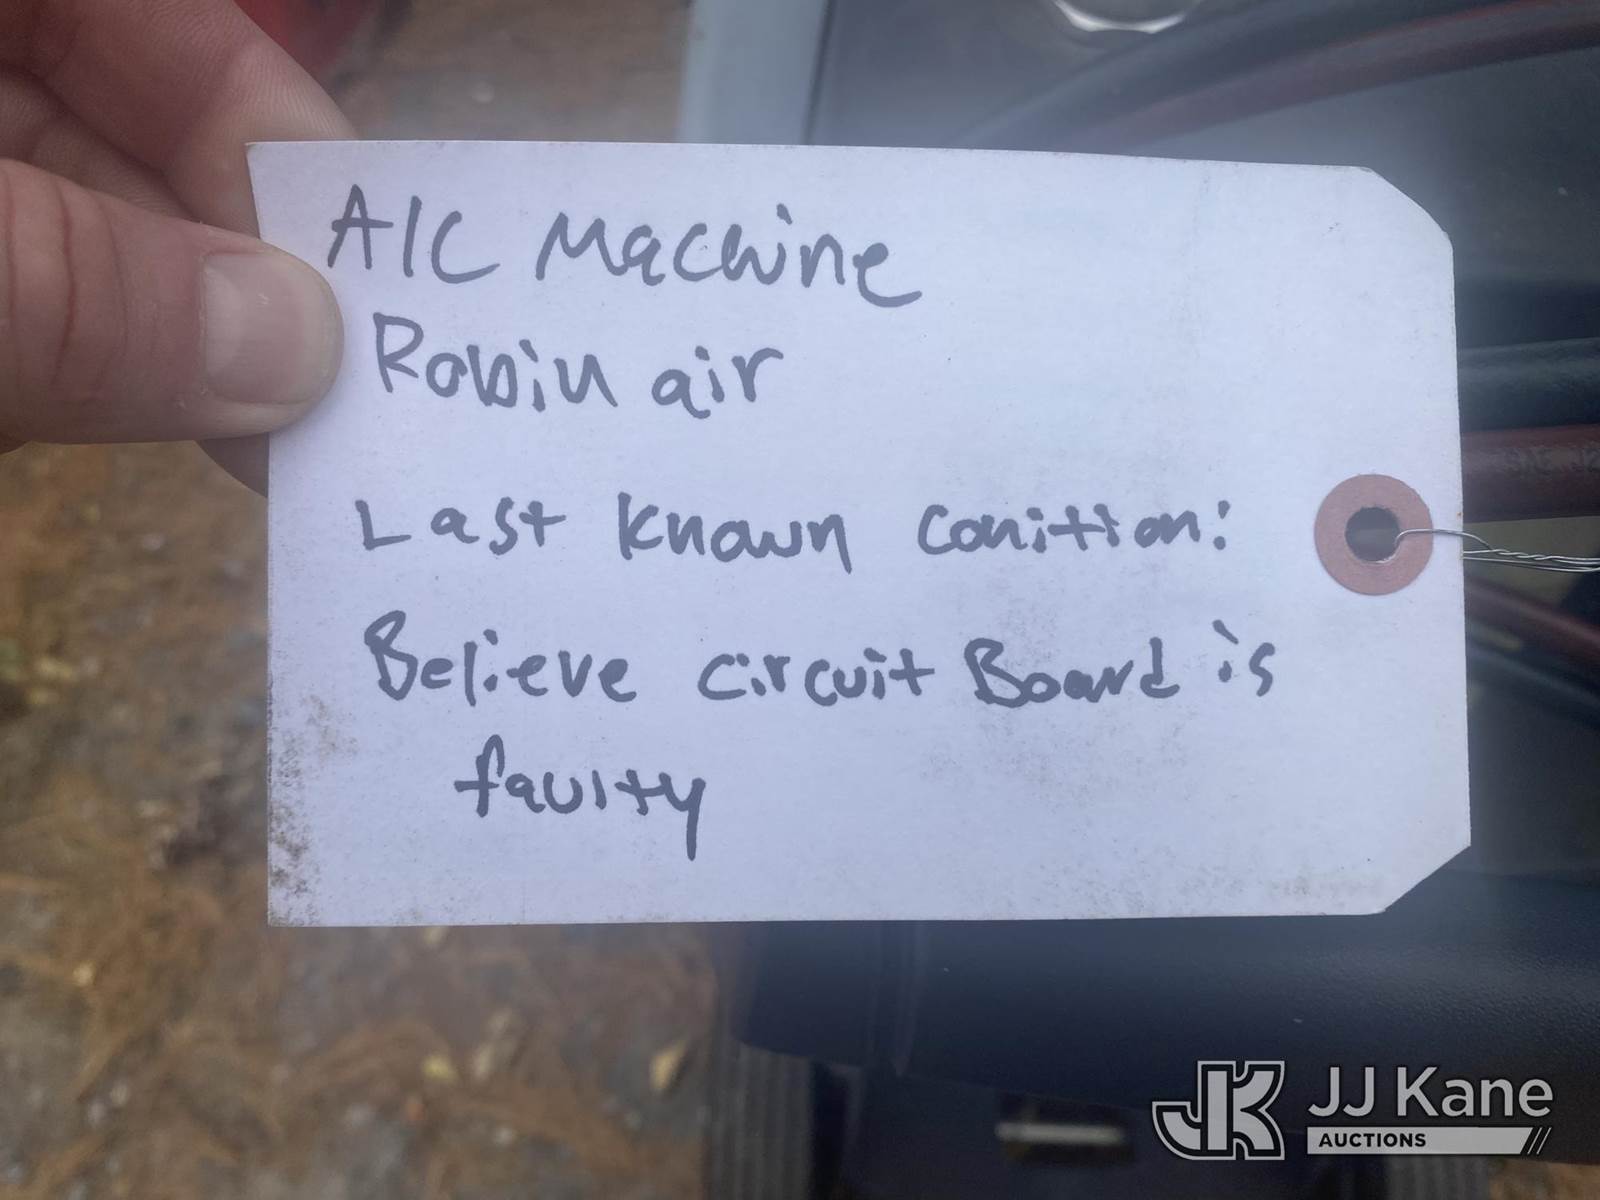 A/C Machine
Robin air
Last known conition:
Believe circuit Board is
faulty
JJ Kane
AUCTIONS